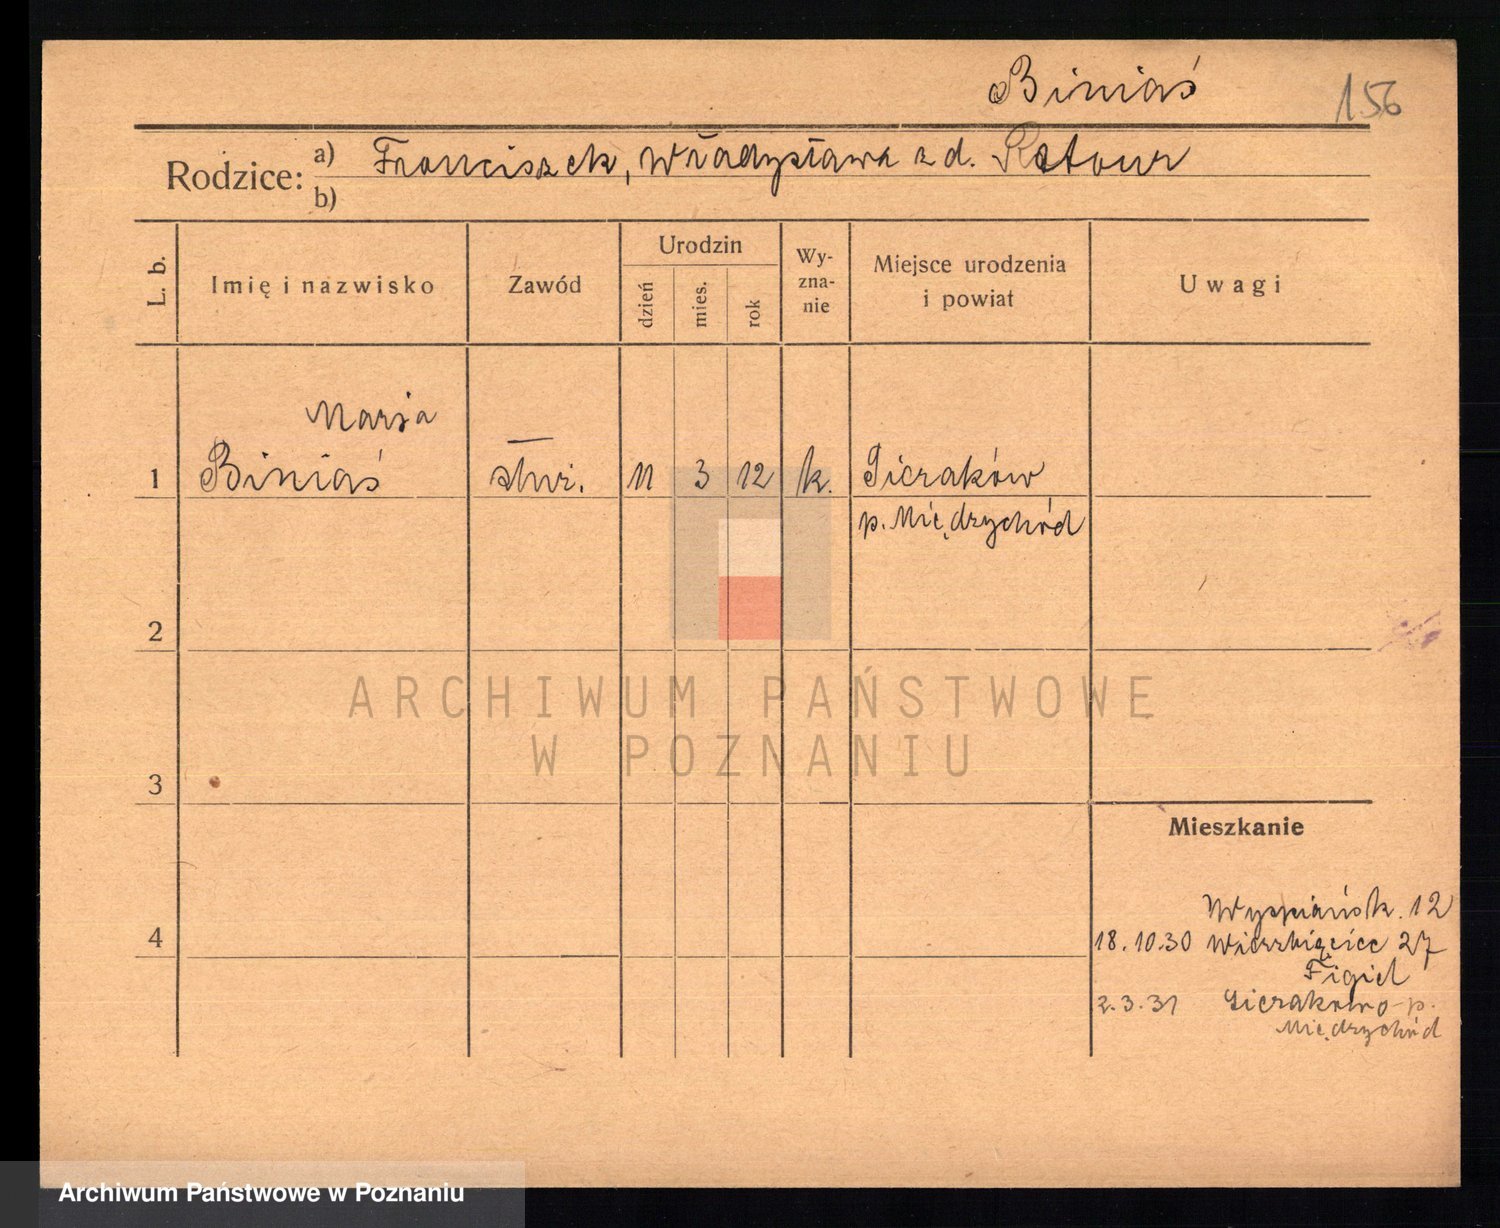 Biniaś
156
Rodzice: a) Franciszek, Władysława z d. Ratour
b)
L. b.
Imię i nazwisko
Zawód
Urodzin
dzień
mies.
rok
Wy-
zna-
nie
Miejsce urodzenia
i powiat
Uwagi
Marja
1 Biniaś służ. 11 3 12 k. Sieraków
p. Międzychód
2
3
4
Mieszkanie
Wyspiańsk. 12
18.10.30 Wierzbięcice 27
Figiel
2.3.31 Sierakowo p.
Międzychód
ARCHIWUM PAŃSTWOWE
W POZNANIU
Archiwum Państwowe w Poznaniu